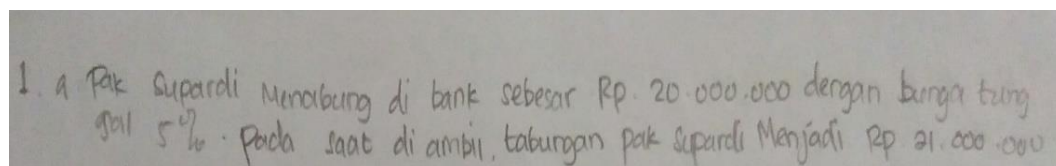 1. a Pak Supardi Menabung di bank sebesar Rp. 20.000.000 dengan bunga tung
gal 5%. Pada saat di ambil, tabungan pak Supardi Menjadi Rp 21.000.000